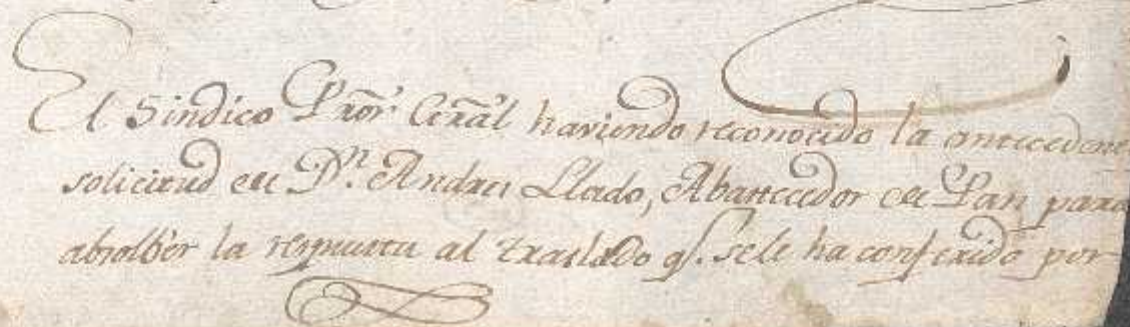 El Sindico Pror. Gral haviendo reconocido la antecedente
solicitud de Dn. Andres Llado, Abastecedor de Pan para
absolber la respuesta al traslado q. sele ha conferido por